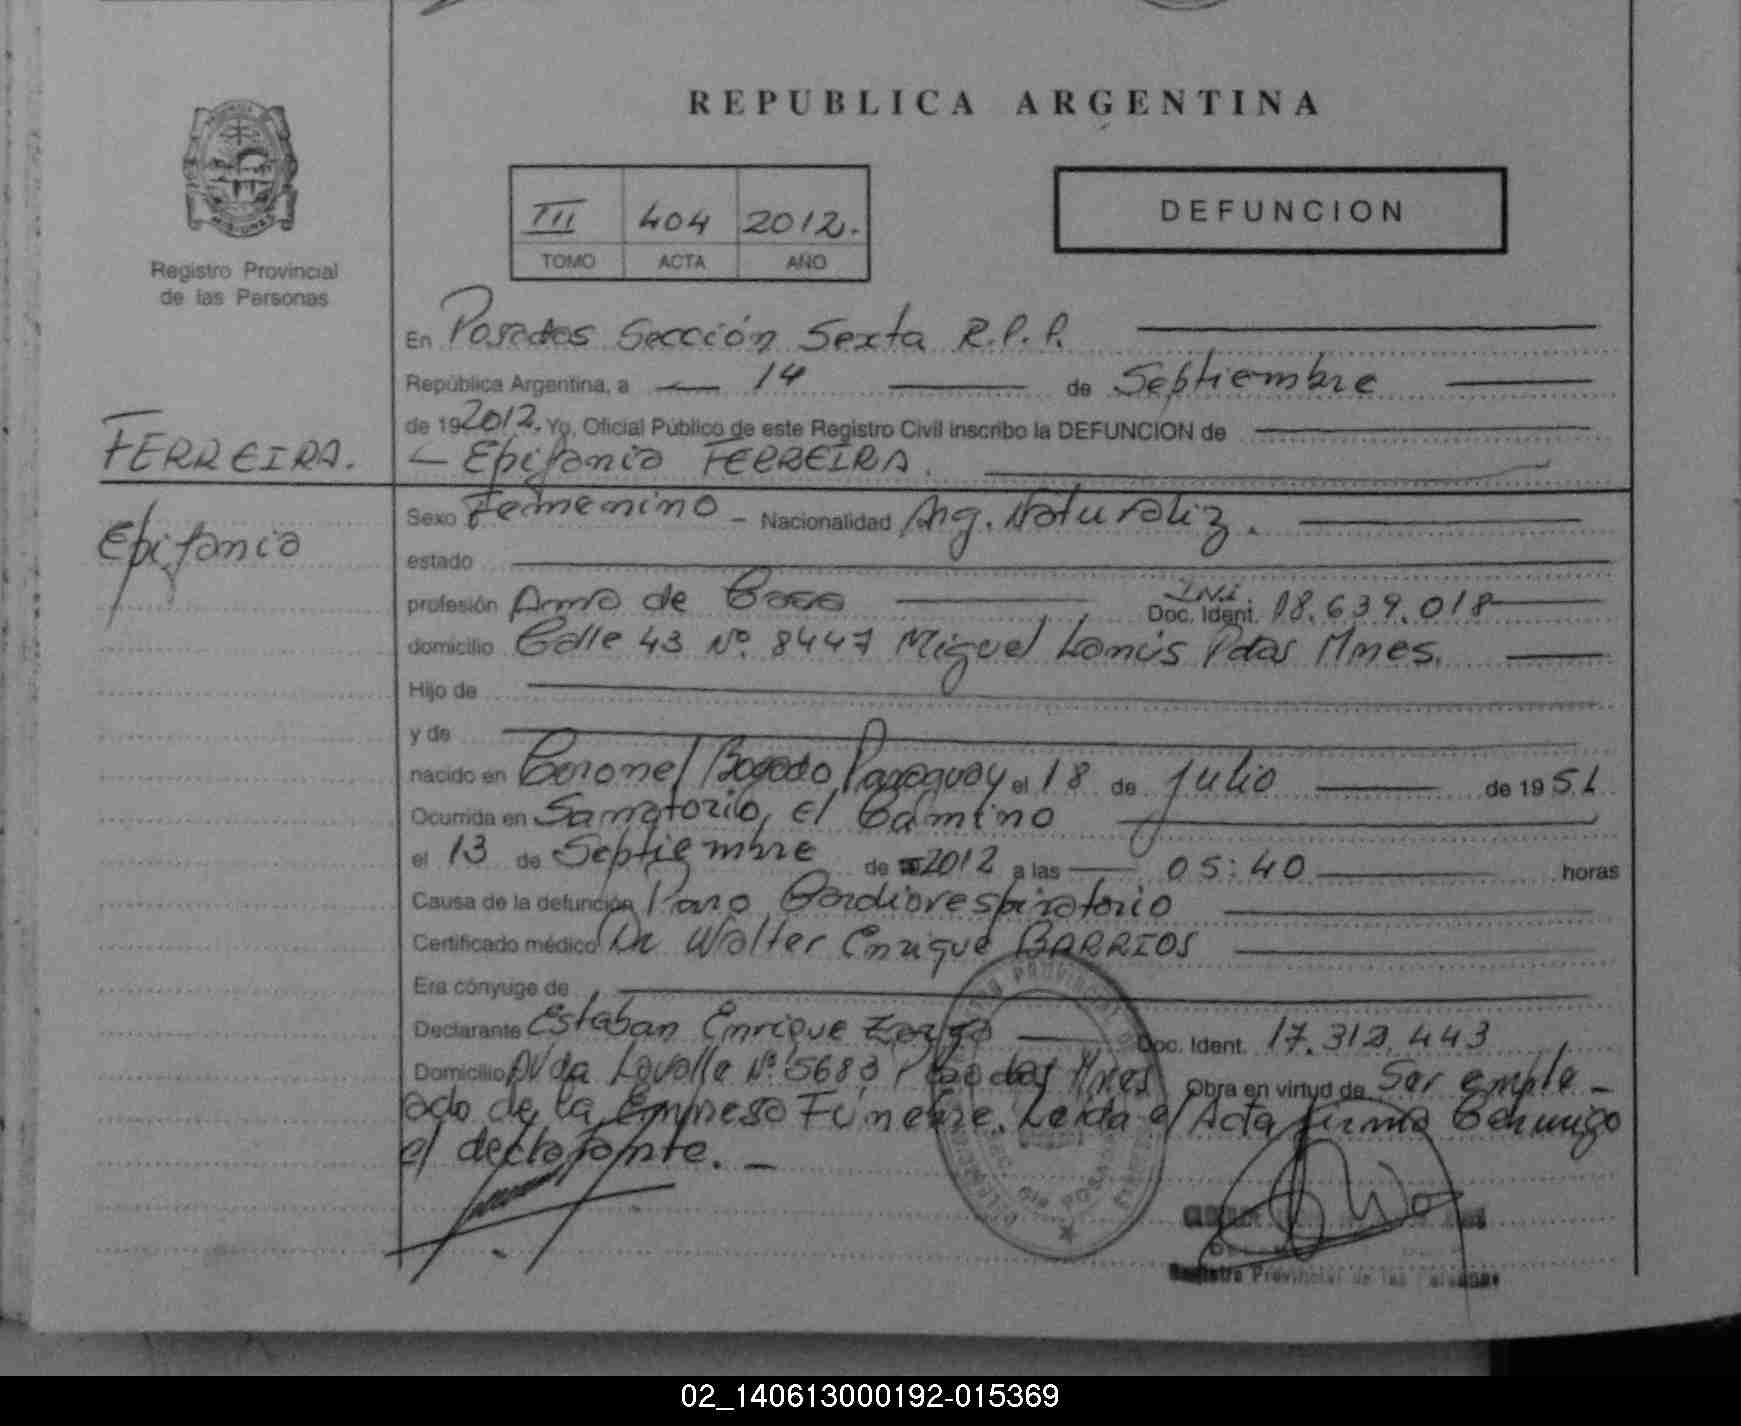 REPUBLICA ARGENTINA
III 404 2012.
TOMO ACTA AÑO
DEFUNCION
Registro Provincial
de las Personas
En Posadas Sección Sexta R.P.P.
República Argentina, a 14 de Septiembre
de 192012. Yo, Oficial Público de este Registro Civil inscribo la DEFUNCION de
FERREIRA.
Epifania FERREIRA.
Epifania
Sexo Femenino - Nacionalidad Arg. Naturaliz.
estado
profesión Ama de Casa D.N.I. Doc. Ident. 18.639.018
domicilio Calle 43 Nº 8447 Miguel Lanús Pdas Mnes.
Hijo de
y de
nacido en Coronel Bogado Paraguay el 18 de julio de 1951
Ocurrida en Sanatorio el Camino
el 13 de Septiembre de 2012 a las 05:40 horas
Causa de la defunción Paro Cardiorespiratorio
Certificado médico Dr Walter Enrique BARRIOS
Era cónyuge de
Declarante Esteban Enrique Doc. Ident. 17.312.443
Domicilio Avda Lavalle Nº 5683 Posadas Mnes Obra en virtud de Ser emple-
ado de la Empresa Fúnebre. Leída el Acta firma Conmigo
el declarante. -
Registro Provincial de las Personas
02_140613000192-015369